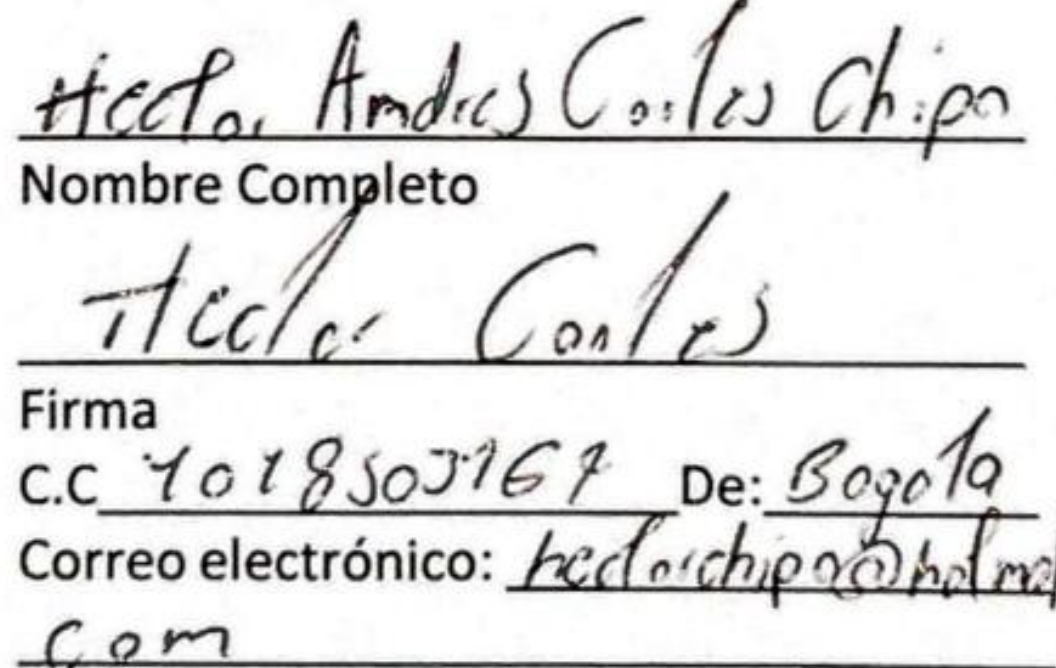 Hector Andres Cortes Chipa
Nombre Completo
Hector Cortes
Firma
C.C 1018503167 De: Bogota
Correo electrónico: hectorchipa@hotmal
com